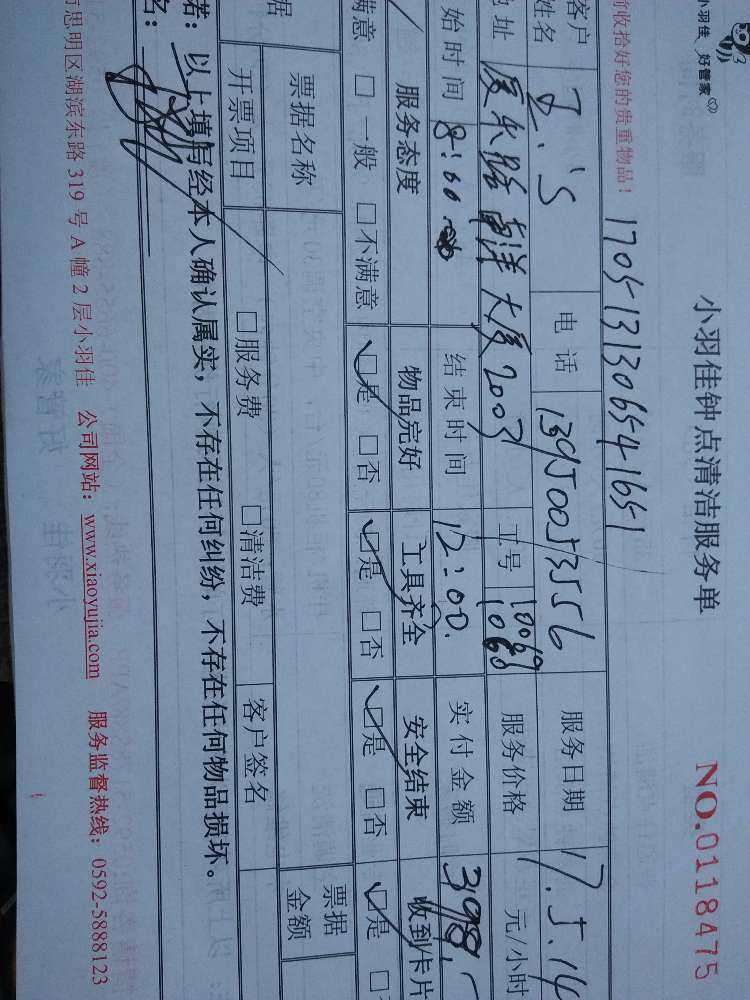 小羽佳 好管家
小羽佳钟点清洁服务单
NO.0118475
前收拾好您的贵重物品！
1705131306541651
客户姓名 电话 13950053556 服务日期 17.5.14
地址 厦禾路 南洋大厦2003 工号 10069 1060 服务价格 元/小时
始时间 8:00 结束时间 12:00. 实付金额 398.
服务态度 物品完好 工具齐全 安全结束 收到卡片
满意 □一般 □不满意 □是 □否 □是 □否 □是 □否 □是
据 票据名称 票据金额
开票项目 □服务费 □清洁费 客户签名
诺：以上填写经本人确认属实，不存在任何纠纷，不存在任何物品损坏。
名：
思明区湖滨东路 319 号 A 幢 2 层小羽佳 公司网站：www.xiaoyujia.com 服务监督热线：0592-5888123